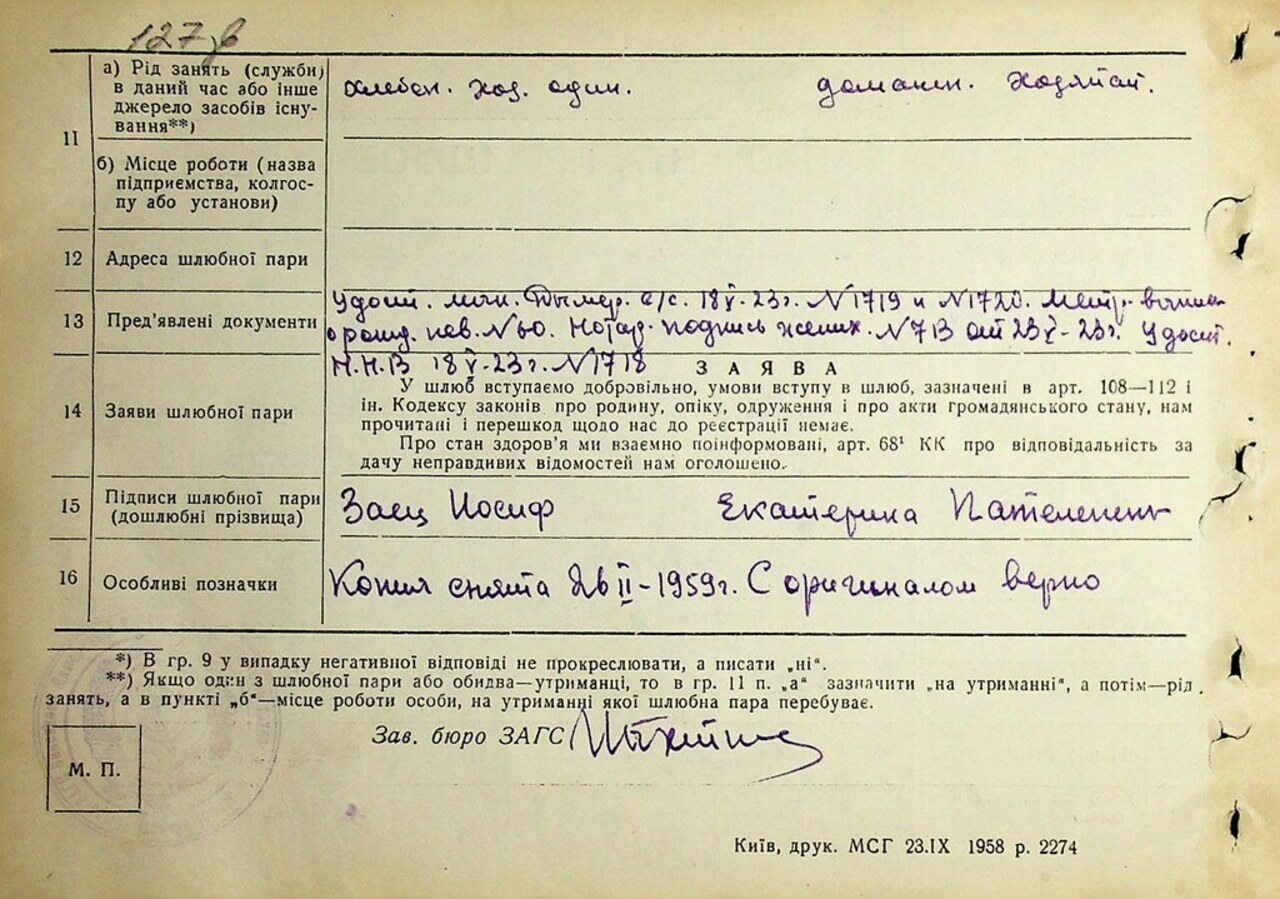 127
а) Рід занять (служби) в даний час або інше джерело засобів існування**)
хлебоп. хоз. один. домашн. хозяйка.
11
б) Місце роботи (назва підприємства, колгоспу або установи)
12 Адреса шлюбної пари
Удост. мил. Дымер. с/с. 18 V-23г. №1719 и №1720. Метр. выпись
13 Пред’явлені документи
о рожд. нев. №60. Нотар. подпись жених. №713 от 23 V-23г. Удост.
18 V-23г. №1718
ЗАЯВА
У шлюб вступаємо добровільно, умови вступу в шлюб, зазначені в арт. 108—112 і
14 Заяви шлюбної пари
ін. Кодексу законів про родину, опіку, одруження і про акти громадянського стану, нам
прочитані і перешкод щодо нас до реєстрації немає.
Про стан здоров’я ми взаємно поінформовані, арт. 68¹ КК про відповідальність за
дачу неправдивих відомостей нам оголошено.
15 Підписи шлюбної пари (дошлюбні прізвища)
Заец Иосиф Екатерина
16 Особливі позначки
Копия снята 26 II-1959г. С оригиналом верно
*) В гр. 9 у випадку негативної відповіді не прокреслювати, а писати „ні“.
**) Якщо один з шлюбної пари або обидва—утриманці, то в гр. 11 п. „а“ зазначити „на утриманні“, а потім—рід
занять, а в пункті „б“—місце роботи особи, на утриманні якої шлюбна пара перебуває.
Зав. бюро ЗАГС
М. П.
Київ, друк. МСГ 23.IX 1958 р. 2274